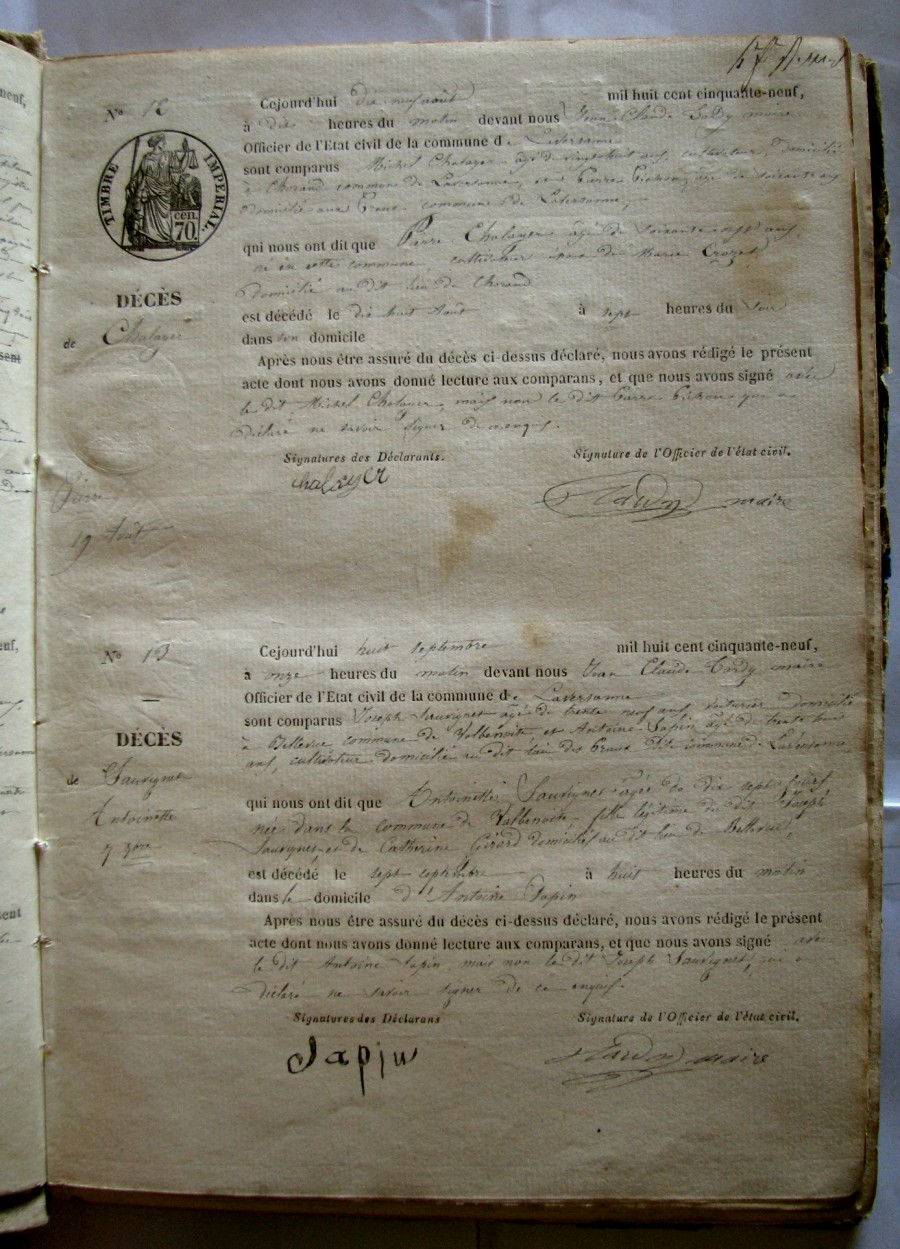 No 12
Cejourd'hui dix neuf août mil huit cent cinquante-neuf,
à dix heures du matin devant nous Jean Claude maire
Officier de l'Etat civil de la commune de Laversanne
sont comparus Michel Chalayer âgé de vingt huit ans, cultivateur, domicilié
à Chorand commune de Laversanne, et Pierre âgé de soixante ans
domicilié aux Preaux commune de Laversanne,
TIMBRE IMPERIAL.
cen. 70.
qui nous ont dit que Pierre Chalayer âgé de soixante sept ans,
né en cette commune, cultivateur de Marie Crozet
domicilié au dit lieu de Chorand
DÉCÈS
de Chalayer
Pierre
19 Août
est décédé le dix huit Août à sept heures du soir
dans son domicile
Après nous être assuré du décès ci-dessus déclaré, nous avons rédigé le présent
acte dont nous avons donné lecture aux comparans, et que nous avons signé avec
le dit Michel Chalayer, mais non le dit Pierre qui a
déclaré ne savoir signer de ce enquis.
Signatures des Déclarants. Signature de l'Officier de l'état civil.
chalayer maire
No 13
Cejourd'hui huit septembre mil huit cent cinquante-neuf,
à onze heures du matin devant nous Jean Claude maire
Officier de l'Etat civil de la commune de Laversanne
sont comparus Joseph Sauvignet âgé de trente neuf ans, voiturier domicilié
à Bellevue commune de Valbenoite et Antoine Sapin âgé de trente huit
ans, cultivateur domicilié au dit lieu des Preaux dite commune de Laversanne
DÉCÈS
de Sauvignet
Antoinette
7 7bre
qui nous ont dit que Antoinette Sauvignet âgée de dix sept jours
née dans la commune de Valbenoite, fille légitime du dit Joseph
Sauvignet et de Catherine Gérard domiciliés au dit lieu de Bellevue,
est décédé le sept septembre à huit heures du matin
dans le domicile d'Antoine Sapin
Après nous être assuré du décès ci-dessus déclaré, nous avons rédigé le présent
acte dont nous avons donné lecture aux comparans, et que nous avons signé avec
le dit Antoine Sapin, mais non le dit Joseph Sauvignet, qui a
déclaré ne savoir signer de ce enquis.
Signatures des Déclarans Signature de l'Officier de l'état civil.
Sapin maire